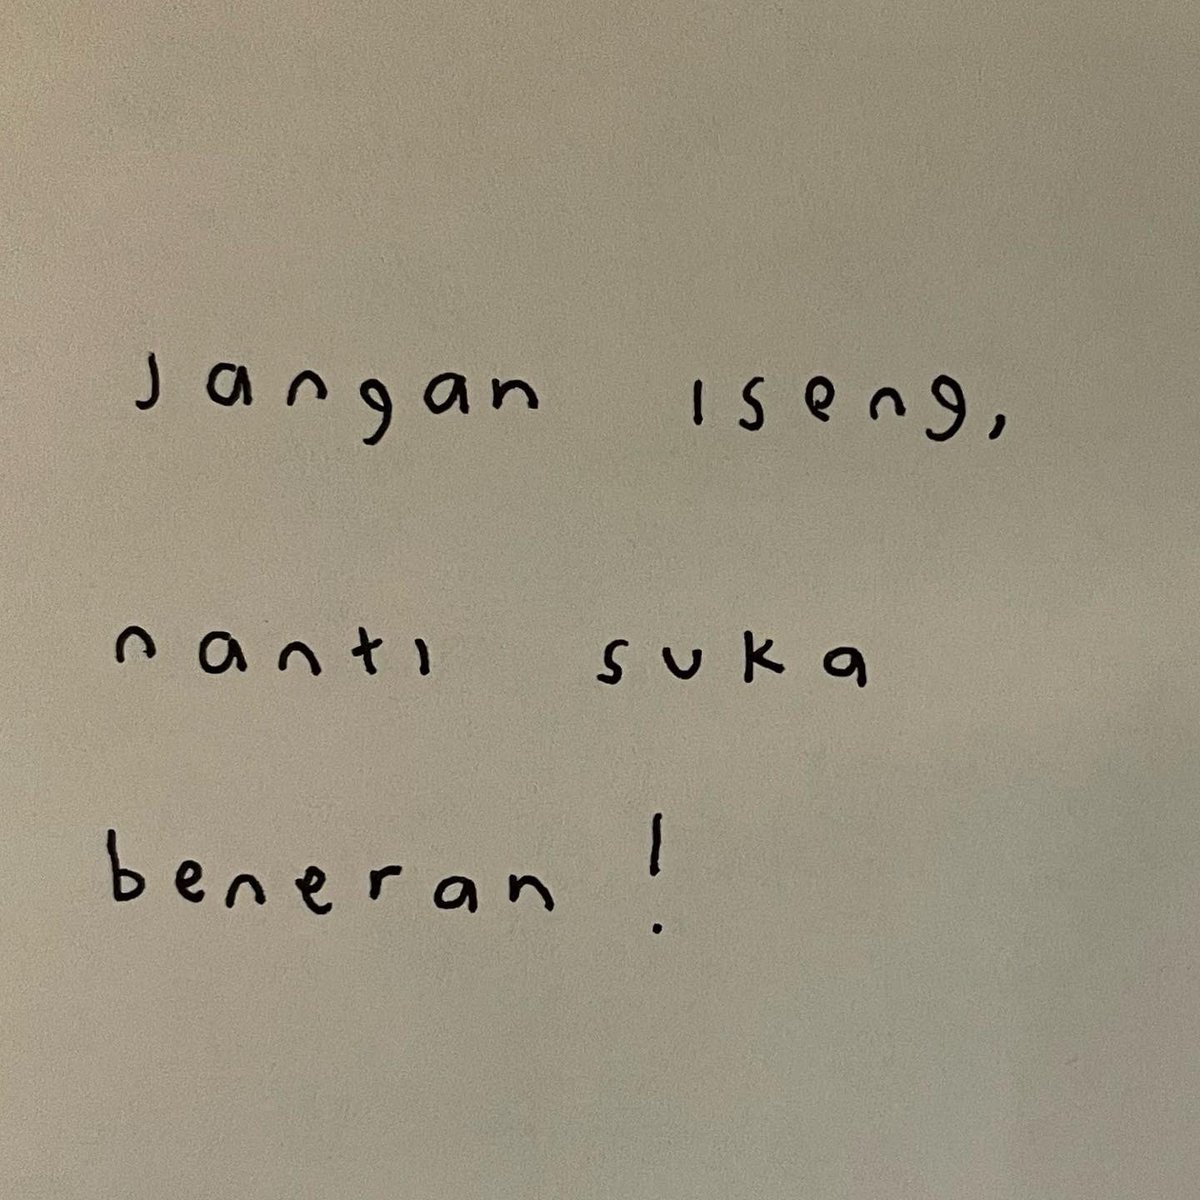 jangan iseng,
nanti suka
beneran !